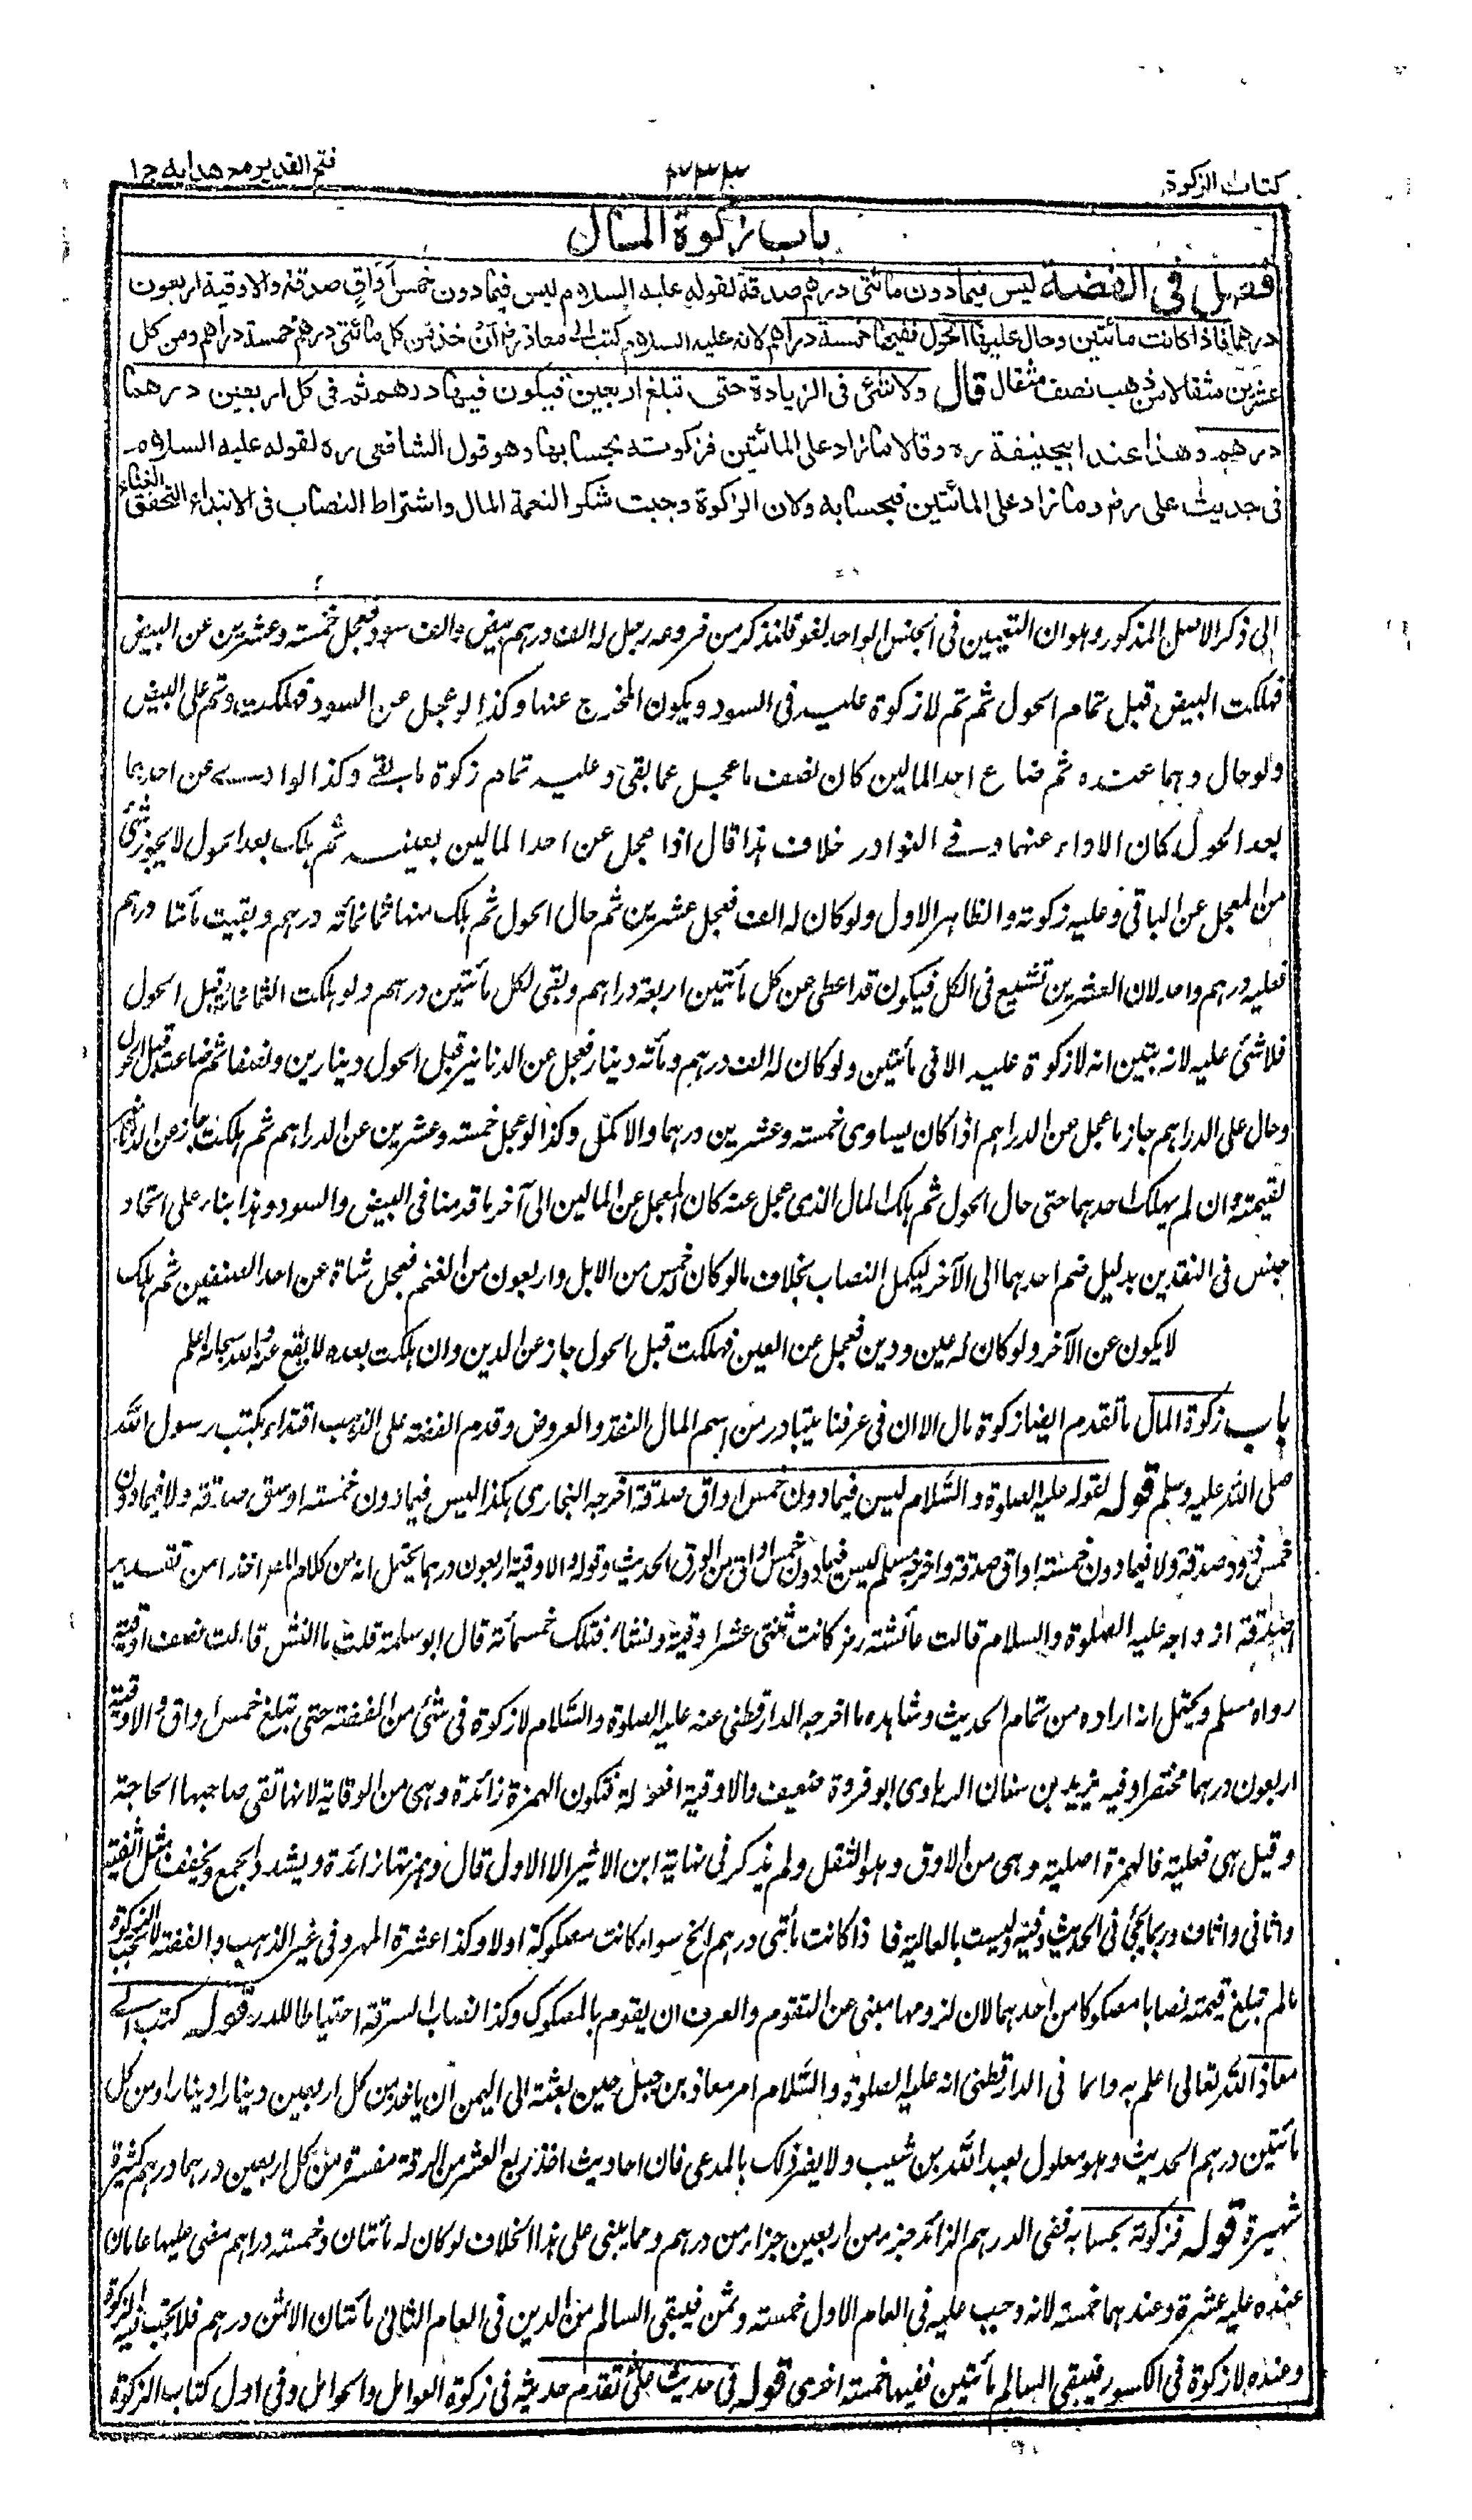 كتاب الزكوة
فتح القدير مع هدايه ج ١
باب زكوة المال
فصل فى الفضة ليس فيما دون مائتى درهم صدقة لقوله عليه السلام ليس فيما دون خمس اواق صدقة والاوقية اربعون
درهما فاذا كانت مائتين وحال عليها الحول ففيها خمسة دراهم لانه عليه السلام كتب الى معاذ رض ان خذ من كل مائتى درهم خمسة دراهم ومن كل
عشرين مثقالا من ذهب نصف مثقال قال ولا شئ فى الزيادة حتى تبلغ اربعين فيكون فيها درهم ثم فى كل اربعين درهما
درهم وهذا عند ابيحنيفة ره وقالا ما زاد على المائتين فزكوته بحسابها وهو قول الشافعى ره لقوله عليه السلام
فى حديث على رض وما زاد على المائتين فبحسابه ولان الزكوة وجبت شكر النعمة المال واشتراط النصاب فى الابتداء لتحقق الغناء
الى ذكر الاصل المذكور وهو ان التعيين فى الجنس الواحد لغو فلنذكر من فروعه رجل له الف درهم بيض والف سود فعجل خمسة وعشرين عن البيض
فهلكت البيض قبل تمام الحول ثم تم لا زكوة عليه فى السود ويكون المخرج عنها وكذا لو عجل عن السود فهلكت وتم على البيض
ولو حال وهما عنده ثم ضاع احد المالين كان نصف ما عجل عما بقى وعليه تمام زكوة ما بقے وكذا لو ادے عن احدهما
بعد الحول كان الاداء عنهما وفے النوادر خلاف هذا قال اذا عجل عن احد المالين بعينه ثم هلك بعد الحول لا يجوز شئ
من المعجل عن الباقى وعليه زكوته والظاهر الاول ولو كان له الف فعجل عشرين ثم حال الحول ثم هلك منها ثمانمائة درهم وبقيت مأتا درهم
فعليه درهم واحد لان العشرين تشيع فى الكل فيكون قد اعطى عن كل مأتين اربعة دراهم وبقى لكل مأتين درهم ولو هلكت الثمانمائة قبل الحول
فلا شئ عليه لانه تبين انه لا زكوة عليه الا فى مأتين ولو كان له الف درهم ومأته دينار فعجل عن الدنانير قبل الحول دينارين ونصفا ثم ضاعت قبل الحول
وحال على الدراهم جاز ما عجل عن الدراهم اذا كان يساوى خمسة وعشرين درهما والا كمل وكذا لو عجل خمسة وعشرين عن الدراهم ثم هلكت جاز عن الدنانير
بقيمته وان لم يهلك احدهما حتى حال الحول ثم هلك المال الذى عجل عنه كان المعجل عن المالين الى آخر ما قدمنا فى البيض والسود وهذا بناء على اتحاد
جنس فى النقدين بدليل ضم احدهما الى الآخر ليكمل النصاب بخلاف ما لو كان خمس من الابل واربعون من الغنم فعجل شاة عن احد الصنفين ثم هلك
لا يكون عن الآخر ولو كان له عين ودين فعجل عن العين فهلكت قبل الحول جاز عن الدين وان هلكت بعده لا يقع عنه والله سبحانه اعلم
باب زكوة المال ما تقدم ايضا زكوة مال الا ان فى عرفنا يتبادر من اسم المال النقد والعروض وقدم الفضة على الذهب اقتداء بكتب رسول الله
صلى الله عليه وسلم قوله لقوله عليه الصلوة والسلام ليس فيما دون خمس اواق صدقة اخرجه البخارى هكذا ليس فيما دون خمسة اوسق صدقة ولا فيما دون
خمس ذود صدقة ولا فيما دون خمسة اواق صدقة واخرجه مسلم ليس فيما دون خمس اواق من الورق الحديث وقوله والاوقية اربعون درهما يحتمل انه من كلام المص اخذا من تقدير
اصدقة ازواجه عليه الصلوة والسلام قالت عائشة رض كانت ثنتى عشر اوقية ونشا فتلك خمسمأته قال ابو سلمة قلت ما النش قالت نصف اوقية
رواه مسلم ويحتمل انه اراده من تمام الحديث وشاهده ما اخرجه الدارقطنى عنه عليه الصلوة والسلام لا زكوة فى شئ من الفضة حتى تبلغ خمس اواق والاوقية
اربعون درهما مختصرا وفيه يزيد بن سنان الرهاوى ابو فروة ضعيف والاوقية افعولة فتكون الهمزة زائدة وهى من الوقاية لانها تقى صاحبها الحاجة
وقيل هى فعلية فالهمزة اصلية وهى من الاوق وهو الثقل ولم يذكر فى نهاية ابن الاثير الا الاول قال وهمزتها زائدة ويشدد الجمع ويخفف مثل اثفية
واثافى واثاف وربما يجئ فى الحديث وقية وليست بالعالية فاذا كانت مأتى درهم الخ سواء كانت مصكوكة اولا وكذا عشرة المهر وفى غير الذهب والفضة لا تجب الزكوة
ما لم تبلغ قيمته نصابا مصكوكا من احدهما لان لزومها مبنى عن التقوم والعرف ان يقوم بالمصكوك وكذا نصاب السرقة احتياطا للدرء قوله كتب الے
معاذ الله تعالى اعلم به وانما فى الدارقطنى انه عليه الصلوة والسلام امر معاذ بن جبل حين بعثه الى اليمن ان ياخذ من كل اربعين دينارا دينارا ومن كل
مأتين درهم الحديث وهو معلول بعبد الله بن شبيب ولا يضر ذلك بالمدعى فان احاديث اخذ ربع العشر من الرقة مفسرة من كل اربعين درهما درهم كثيرة
شهيرة قوله فزكوته بحسابه ففى الدرهم الزائد جزء من اربعين جزأ من درهم ومما يبنى على هذا الخلاف لو كان له مأتان وخمسة دراهم مضى عليها عامان
عنده عليه عشرة وعندهما خمسة لانه وجب عليه فى العام الاول خمسة وثمن فيبقى السالم من الدين فى العام الثانى مأتان الا ثمن درهم فلا تجب فيه الزكوة
وعنده لا زكوة فى الكسور فيبقى السالم مأتين ففيها خمسة اخرى قوله فى حديث على تقدم حديثه فى زكوة العوامل والحوامل وفى اول كتاب الزكوة